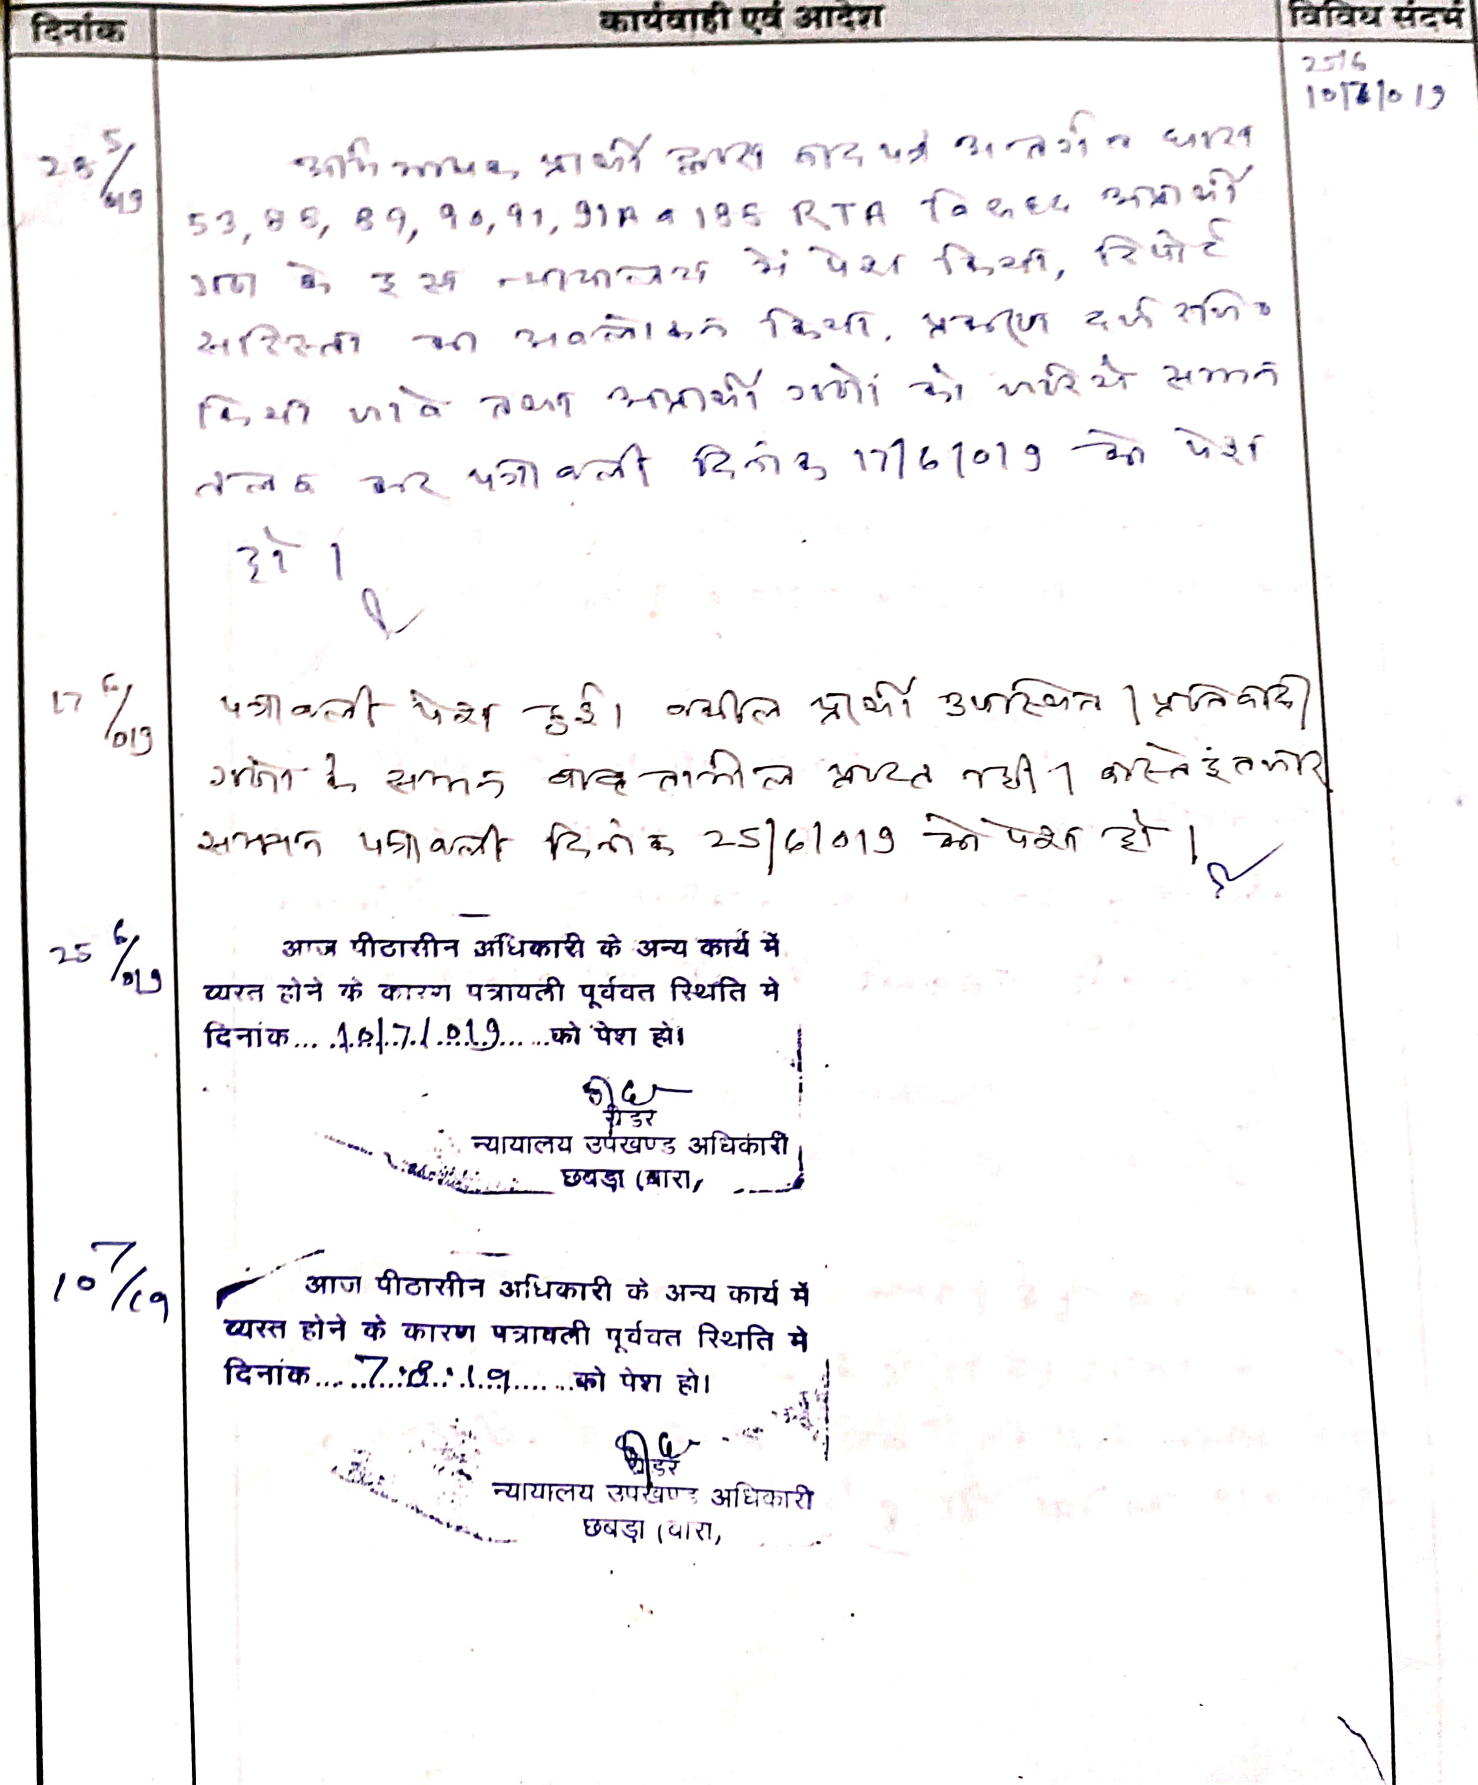 दिनांक
कार्यवाही एवं आदेश
विविध संदर्भ
25/6
10/7/019
28/5/019
अभिभाषक प्रार्थी द्वारा वाद पत्र अन्तर्गत धारा
53, 88, 89, 90, 91, 91A व 188 RTA विरूद्ध अप्रार्थी
गण के इस न्यायालय में पेश किया, रिपोर्ट
सरिस्ता का अवलोकन किया, प्रकरण दर्ज रजि०
किया जावे तथा अप्रार्थी गणों को जरिये सम्मन
तलब कर पत्रावली दिनांक 17/6/019 को पेश
हो।
17/6/019
पत्रावली पेश हुई। वकील प्रार्थी उपस्थित। प्रतिवादी
गणों के सम्मन बाद तामील प्राप्त नहीं। वास्ते इंतजार
सम्मन पत्रावली दिनांक 25/6/019 को पेश हो।
25/6/019
आज पीठासीन अधिकारी के अन्य कार्य में
व्यस्त होने के कारण पत्रावली पूर्ववत स्थिति मे
दिनांक... 10/7/019 .....को पेश हो।
रीडर
न्यायालय उपखण्ड अधिकारी
छबड़ा (बारा,
10/7/19
आज पीठासीन अधिकारी के अन्य कार्य में
व्यस्त होने के कारण पत्रावली पूर्ववत स्थिति मे
दिनांक.... 7.8.19 ......को पेश हो।
रीडर
न्यायालय उपखण्ड अधिकारी
छबड़ा (बारा,